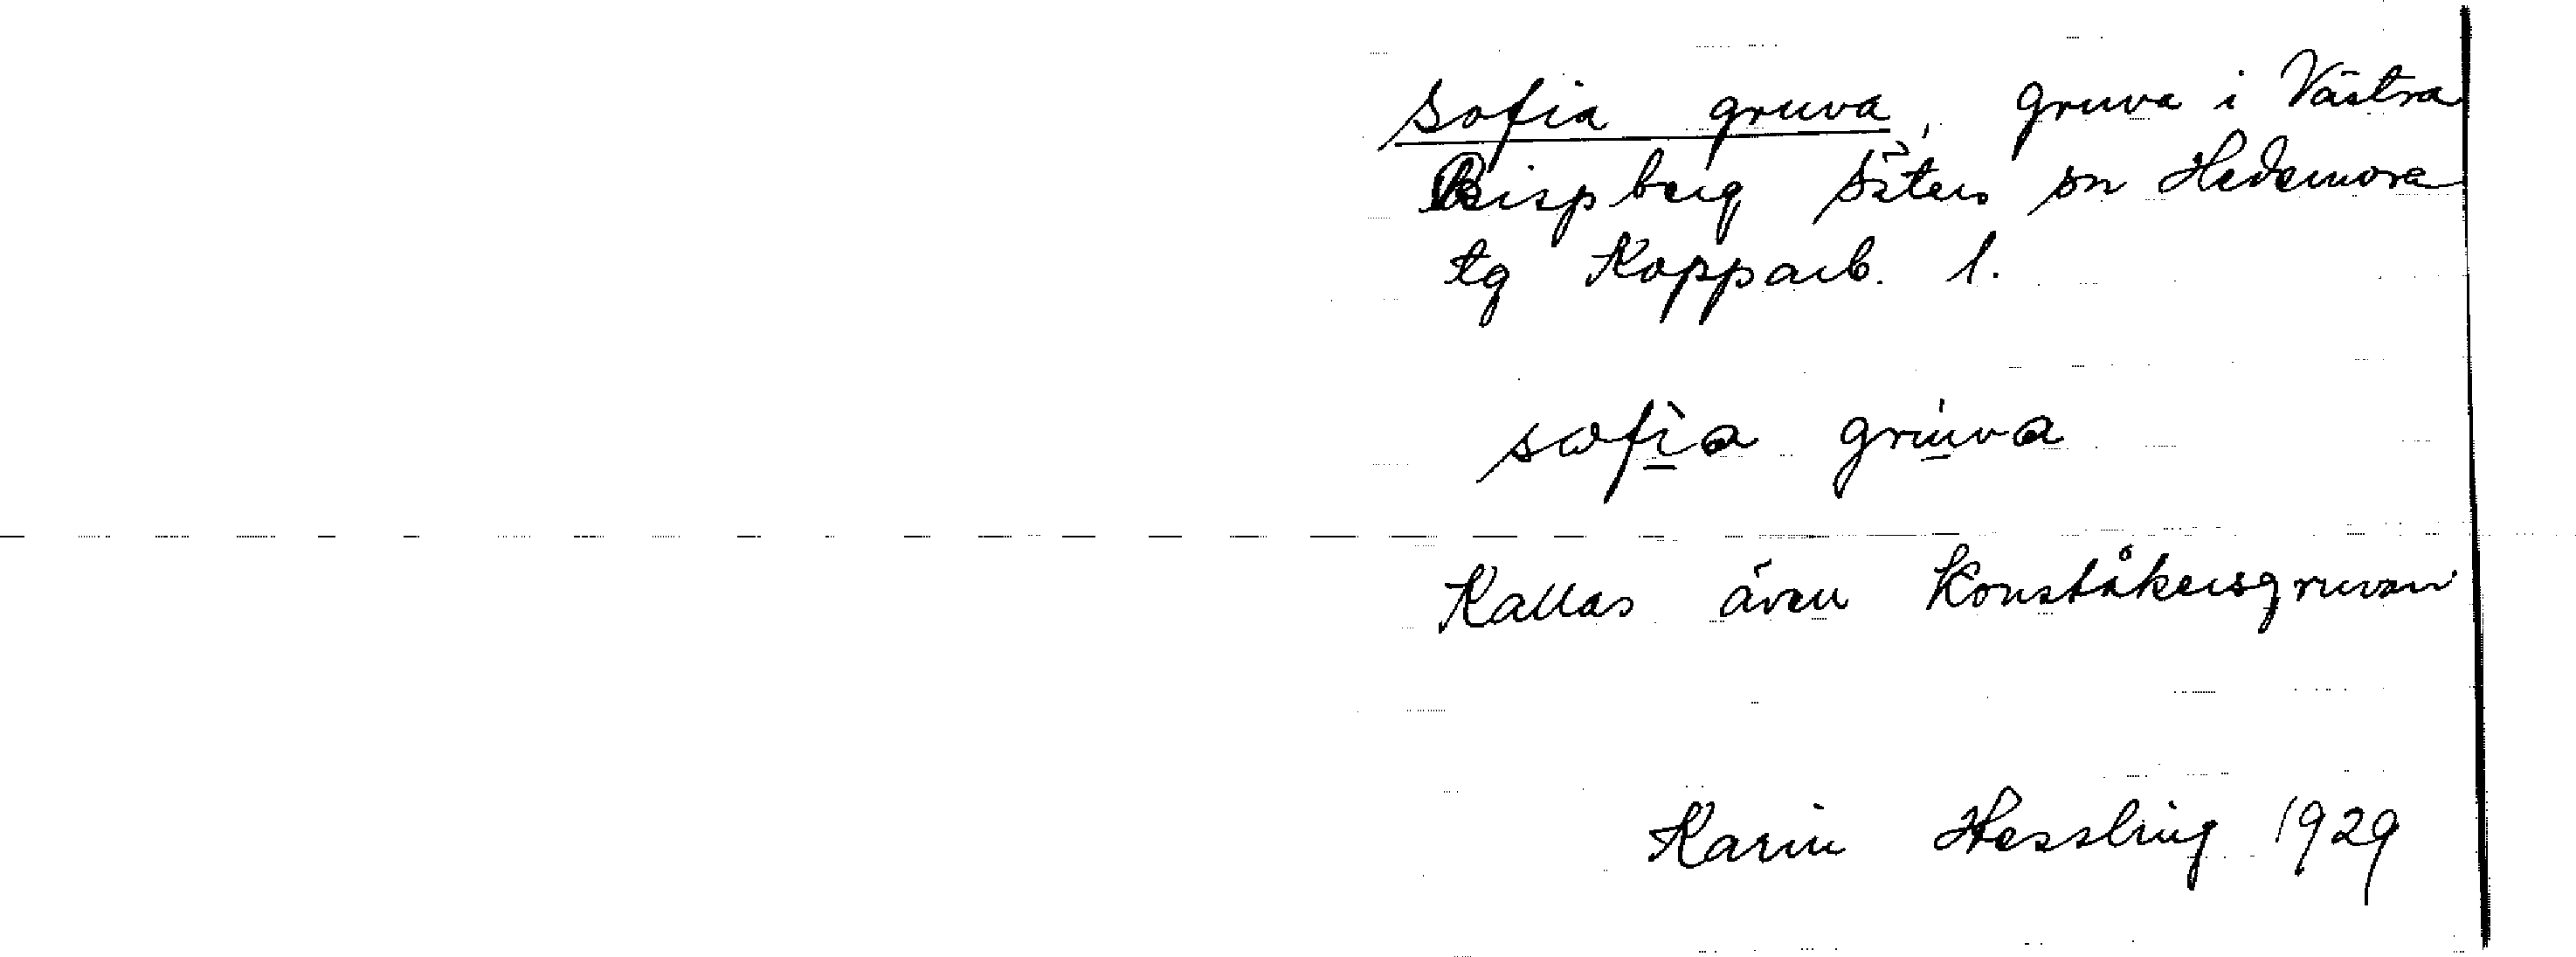 Sofia gruva, gruva i Västra
Bispberg Säters sn Hedemora
tg Kopparb. l.
sωfìa grúva
Kallas även Konståkersgruvan
Karin Hessling 1929